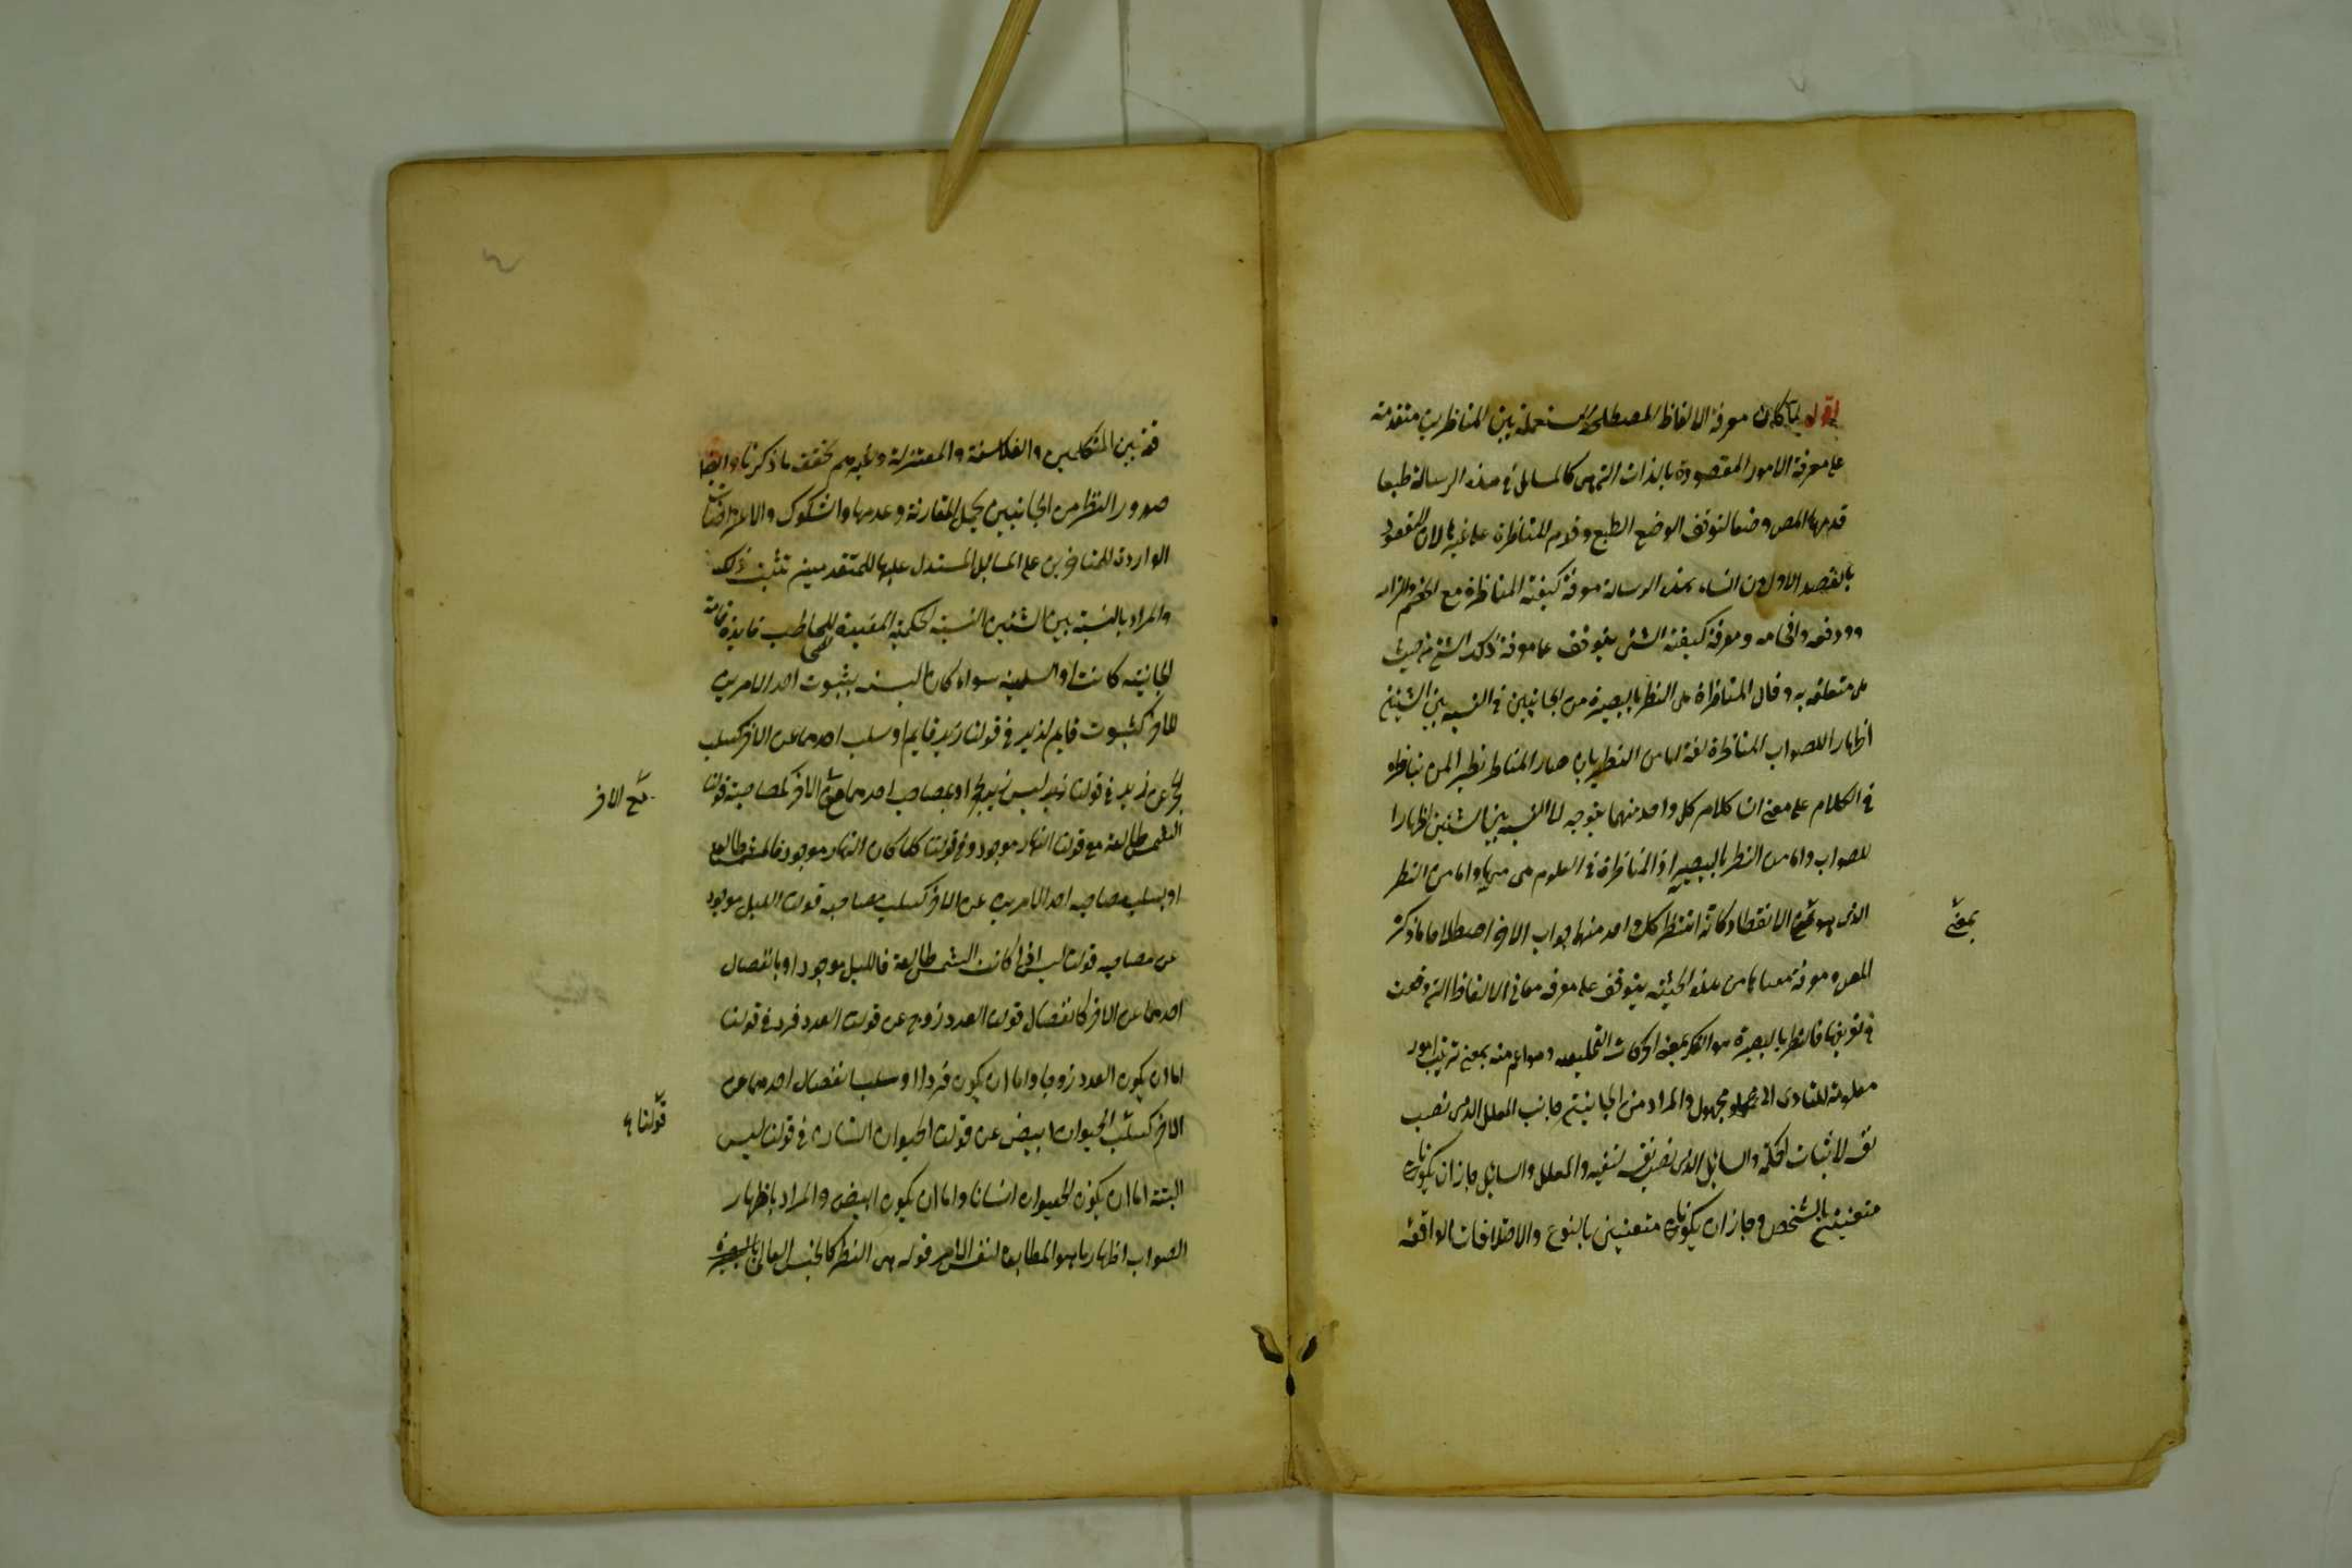 اقول لما كان معرفة الالفاظ المصطلحة المستعملة بين المناظرين متقدمة
على معرفة الامور المقصودة بالذات التى هى كالمسائل فى هذه الرسالة طبعا
قدمها المص وضعا لتوافق الوضع الطبع وقدم المناظرة على غيرها لان المقصود
بالقصد الاول من انشاء هذه الرسالة معرفة كيفية المناظرة مع الخصم والزامه
ودفعه وافحامه ومعرفة كيفية الشئ يتوقف على معرفة ذلك الشئ من حيث
هى متعلقه به وقال المناظرة هى النظر بالبصيرة من الجانبين فى النسبة بين الشيئين
اظهارا للصواب المناظرة لغة اما من النظير بان صار المناظر نظير المن يناظره
فى الكلام على معنى ان كلام كل واحد منهما يتوجه الى النسبة بين الشيئين اظهارا
للصواب واما من النظر بالبصيرة اذ المناظرة فى العلوم هى منها واما من النظر
الذى هو الانتظار وكانه انتظر كل واحد منهما جواب الاخر اصطلاحا ما ذكره
بمعنى
المص ومعرفة معناها من هذه الحيثية يتوقف على معرفة معانى الالفاظ التى وقعت
فى تعريفها فالنظر بالبصيرة هو الفكر بمعنى الحركات التخيلية وهو اعم منه بمعنى ترتيب امور
معلومة للتادى الى مجهول والمراد من الجانبين جانب المعلل الذى نصب
نفسه لاثبات الحكم والسايل الذى نصب نفسه لنفيه والمعلل والسايل جاز ان يكونا
متعينين بالشخص وجاز ان يكونا متعينين بالنوع والاختلافات الواقعة
فى بين المتكلمين والفلاسفة والمعتزلة وغيرهم يحقق ما ذكرنا وايضا
صدور النظر من الجانبين يحتمل المقارنة وعدمها والشكوك والاعتراضات
الواردة للمتاخرين على المسايل المستدل عليها للمتقدمين تثبت ذلك
والمراد بالنسبة بين الشيئين النسبة الحكمية المفيدة للمخاطب فايدة تامة
ايجابية كانت او السلبية سواء كان النسبة بثبوت احد الامرين
للاخر كثبوت قايم لزيد فى قولنا زيد قايم او سلب احدهما عن الاخر كسلب
حجر عن زيد فى قولنا زيد ليس بحجر او بمصاحبة احدهما الاخر كمصاحبة قولنا
مع الاخر
الشمس طالعة مع قولنا النهار موجود فى قولنا كلما كان النهار موجود فالشمس طالعة
او بسلب مصاحبة احد الامرين عن الاخر كسلب مصاحبة قولنا الليل موجود
عن مصاحبة قولنا ليس اذا كانت الشمس طالعة فالليل موجود او بانفصال
احدهما عن الاخر كانفصال قولنا العدد زوج عن قولنا العدد فرد فى قولنا
اما ان يكون العدد زوجا واما ان يكون فردا او سلب انفصال احدهما عن
الاخر كسلب الحيوان ابيض عن قولنا الحيوان انسان فى قولنا ليس
قولنا
البتة اما ان يكون الحيوان انسانا واما ان يكون ابيض والمراد باظهار
الصواب اظهار ما هو المطابق لنفس الامر قوله هى النظر كالجنس العالى